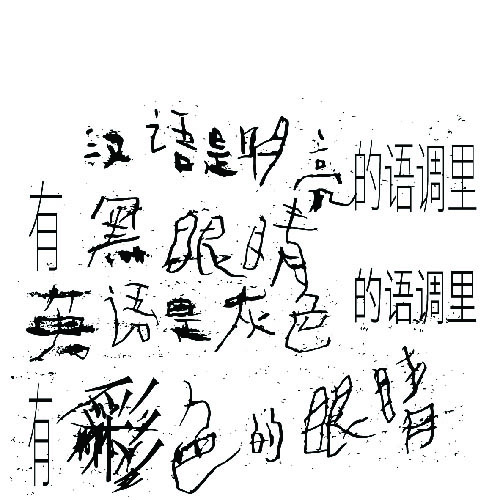 汉语是明亮的语调里
有黑眼睛
英语是灰色的语调里
有彩色的眼睛